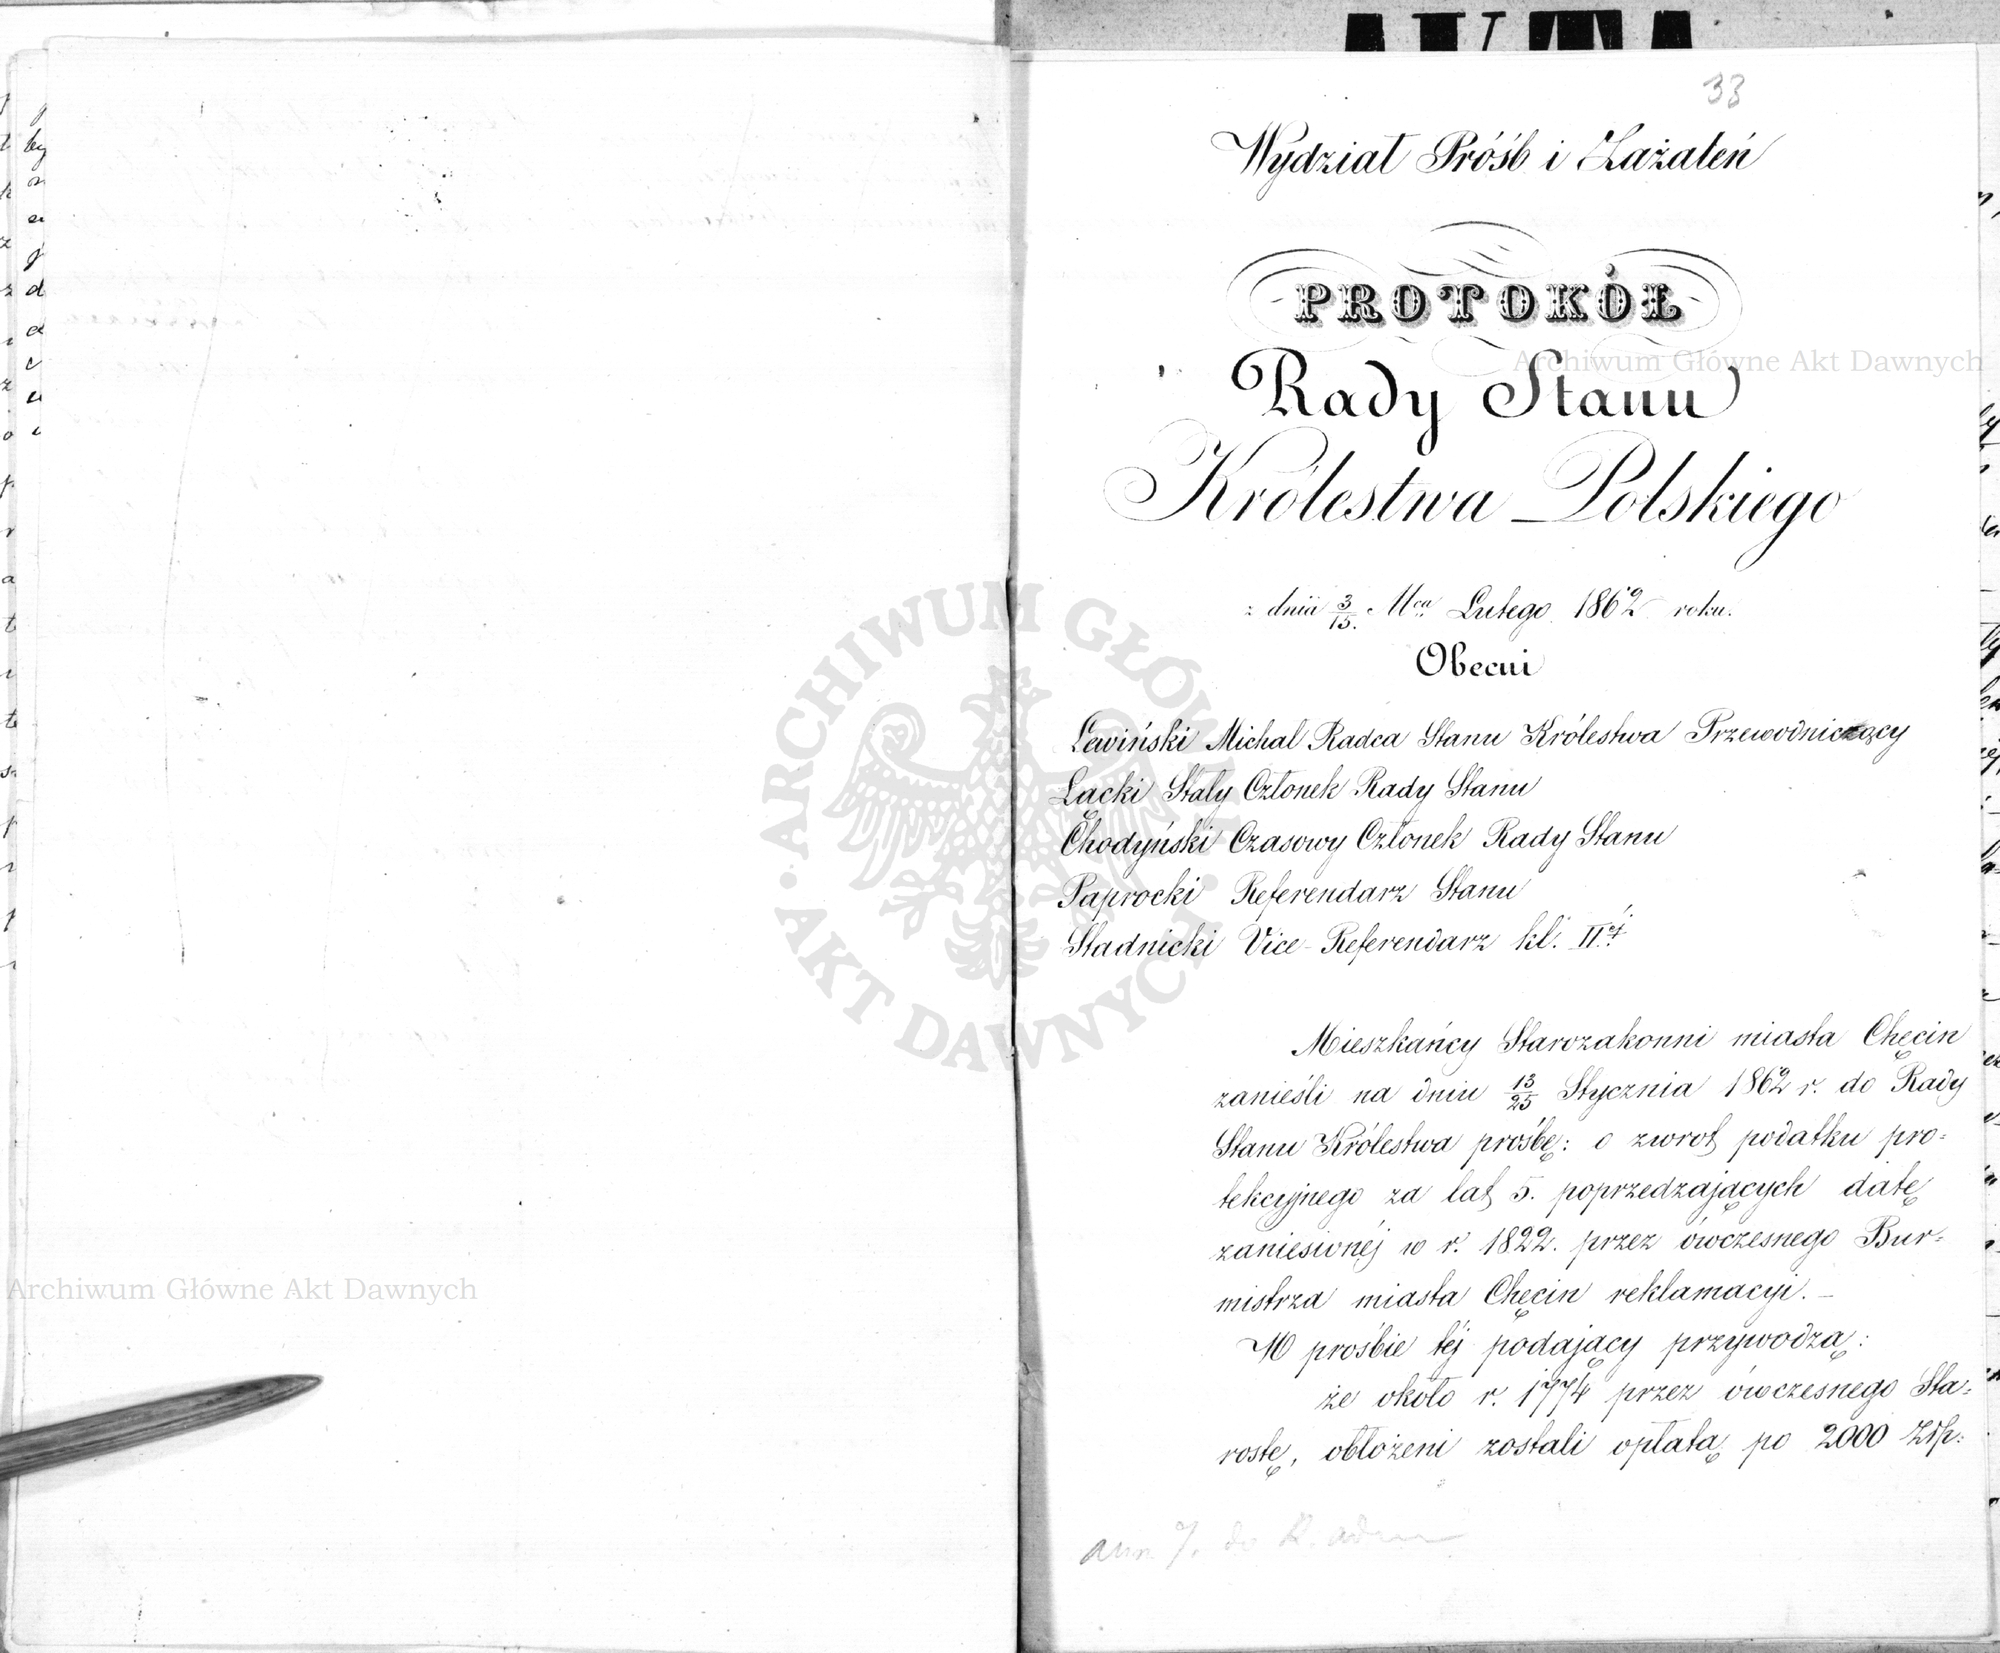 33
Wydział Próśb i Zażaleń
PROTOKÓŁ
Rady Stanu
Królestwa Polskiego
z dnia 3/15. Mca Lutego 1862 roku.
Obecni
Lewiński Michał Radca Stanu Królestwa Przewodniczący
Łacki Stały Członek Rady Stanu
Chodyński Czasowy Członek Rady Stanu
Paprocki Referendarz Stanu
Stadnicki Vice-Referendarz kl. IIéj
Mieszkańcy Starozakonni miasta Chęcin
zanieśli na dniu 13/25 Stycznia 1862 r. do Rady
Stanu Królestwa prośbę: o zwrot podatku pro-
tekcyjnego za lat 5. poprzedzających datę
zaniesionéj w r. 1822. przez ówczesnego Bur-
mistrza miasta Chęcin reklamacyi. –
W prośbie téj podający przywodzą:
że około r. 1774 przez ówczesnego Sta-
rostę, obłożeni zostali opłatą po 2000 Złp.
do R.
Archiwum Główne Akt Dawnych
Archiwum Główne Akt Dawnych
ARCHIWUM GŁÓWNE AKT DAWNYCH